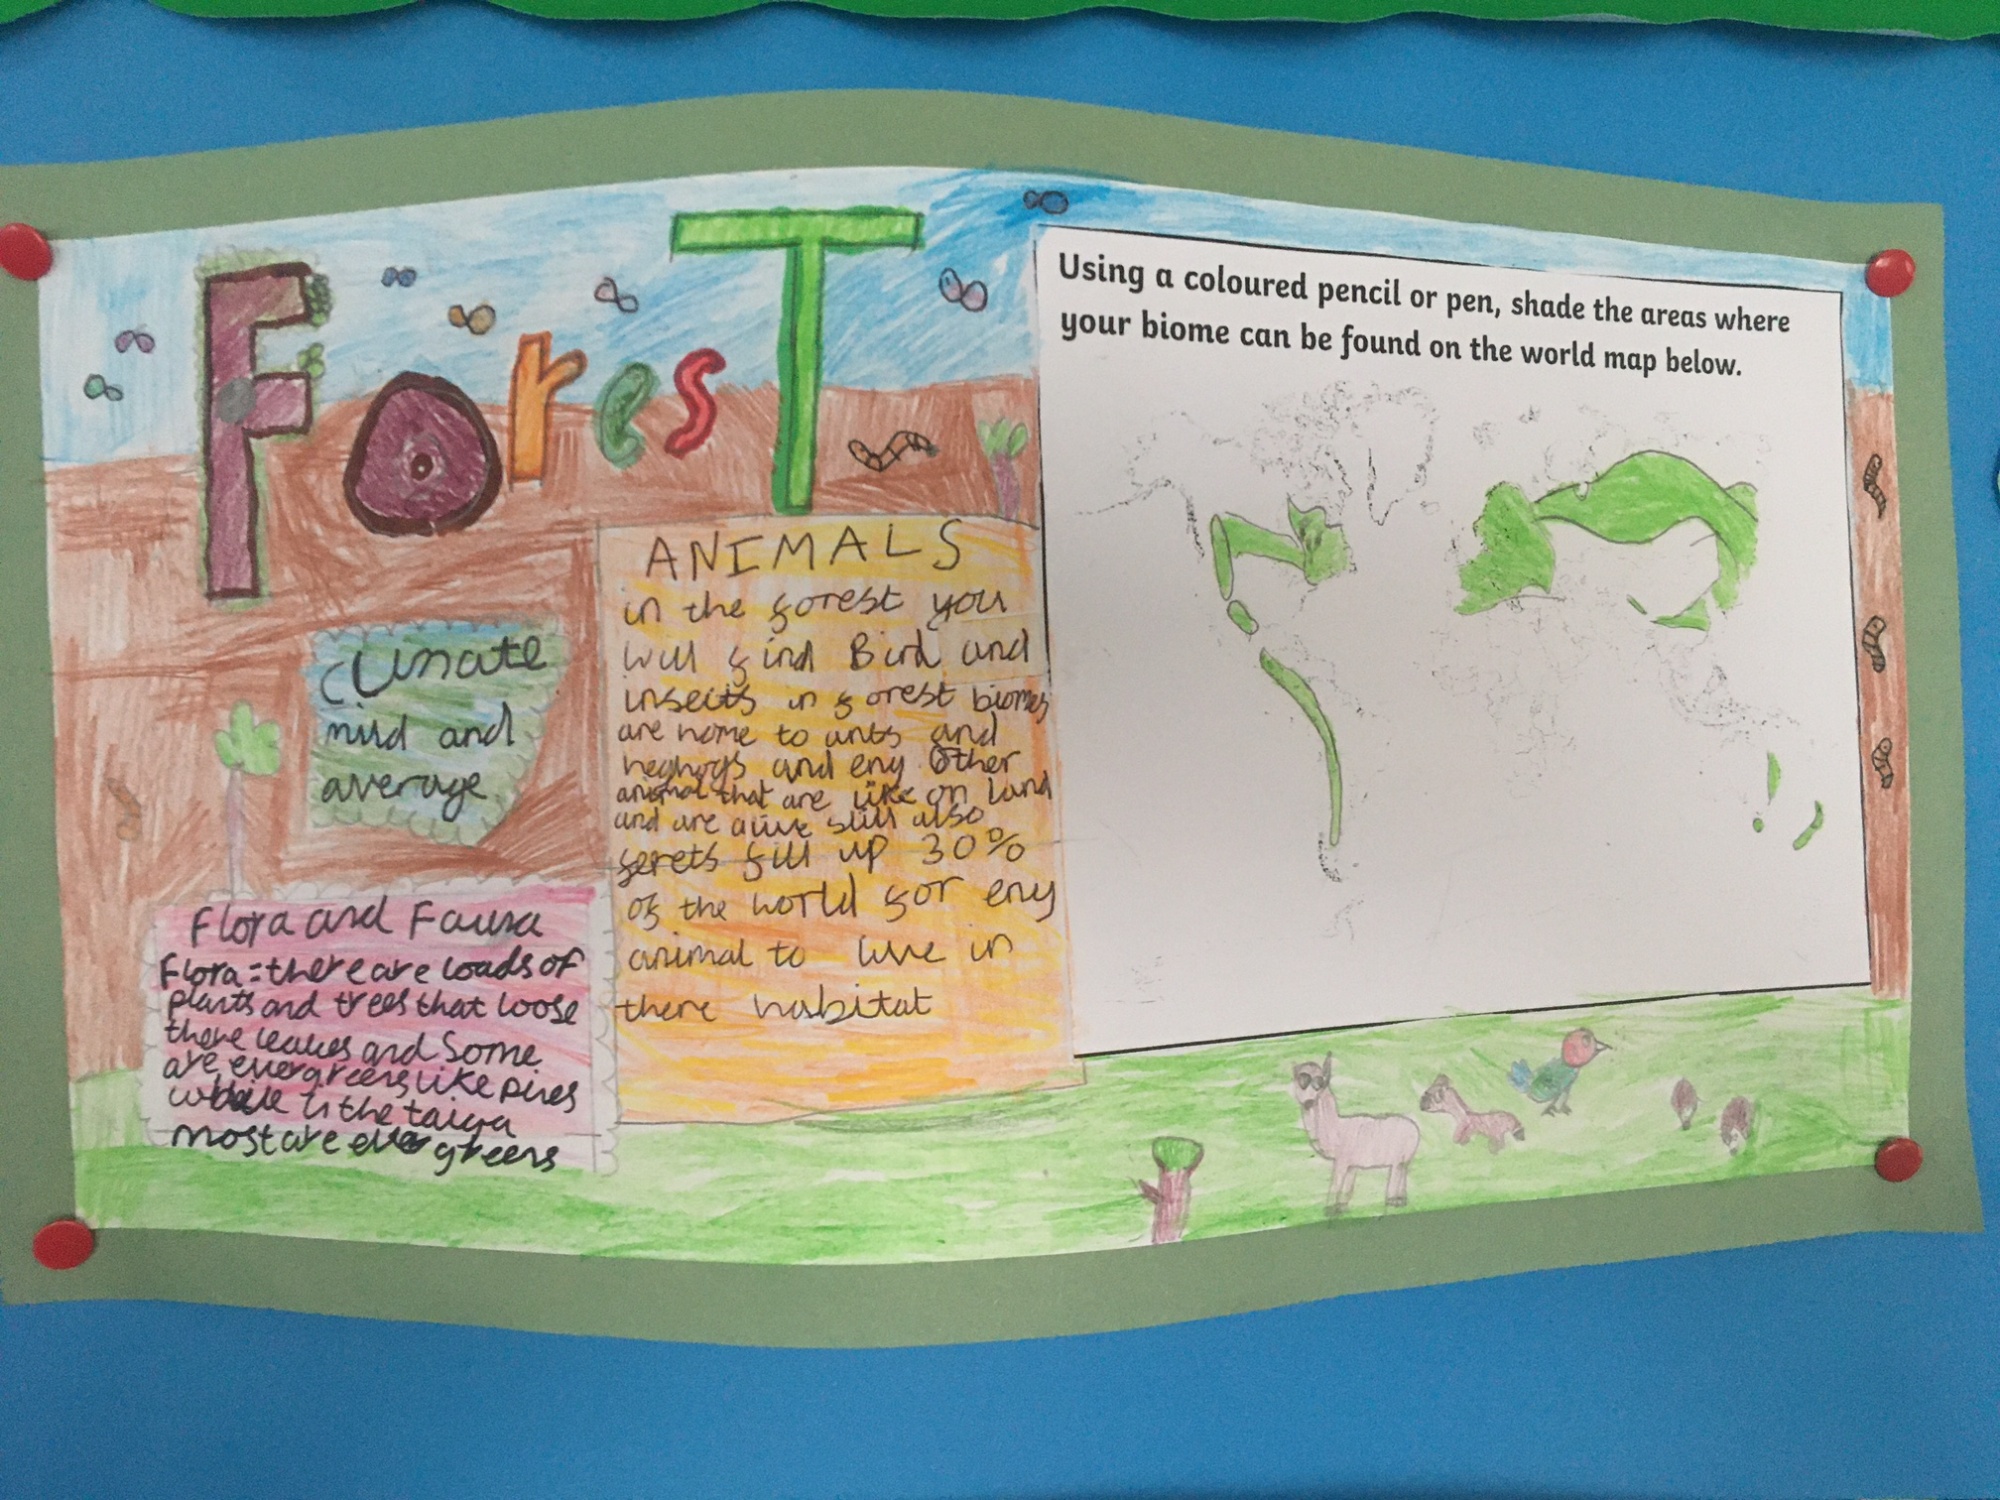 ForesT
Using a coloured pencil or pen, shade the areas where
your biome can be found on the world map below.
climate
mild and
average
ANIMALS
in the forest you
will find Bird and
insects in forest biomes
are home to ants and
heghogs and eny other
animal that are like on land
and are alive still also
ferets fill up 30%
of the world for eny
animal to live in
there habitat
Flora and Fauna
Flora:there are loads of
plants and trees that loose
there leaves and some
are evergreens like pines
while in the taiga
most are evergreens